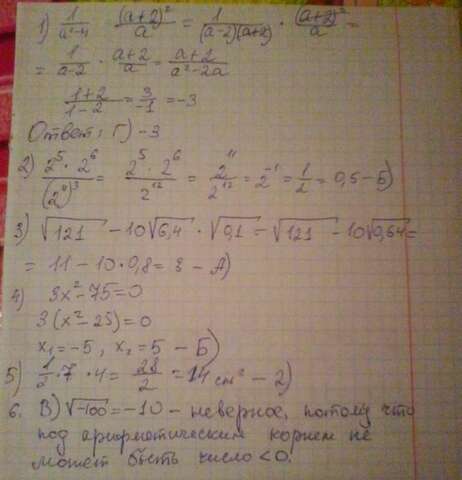 1) 1/(a²-4) · (a+2)²/a = 1/((a-2)(a+2)) · (a+2)²/a =
= 1/(a-2) · (a+2)/a = (a+2)/(a²-2a)
(1+2)/(1-2) = 3/-1 = -3
Ответ: Г) -3
2) (2⁵ · 2⁶)/(2⁴)³ = (2⁵ · 2⁶)/2¹² = 2¹¹/2¹² = 2⁻¹ = 1/2 = 0,5 - Б)
3) √121 - 10√6,4 · √0,1 = √121 - 10√0,64 =
= 11 - 10·0,8 = 3 - А)
4) 3x² - 75 = 0
3(x² - 25) = 0
x₁ = -5, x₂ = 5 - Б)
5) 1/2 · 7 · 4 = 28/2 = 14 cm² - 2)
6. В) √-100 = -10 - неверное, потому что
под арифметическим корнем не
может быть число < 0.